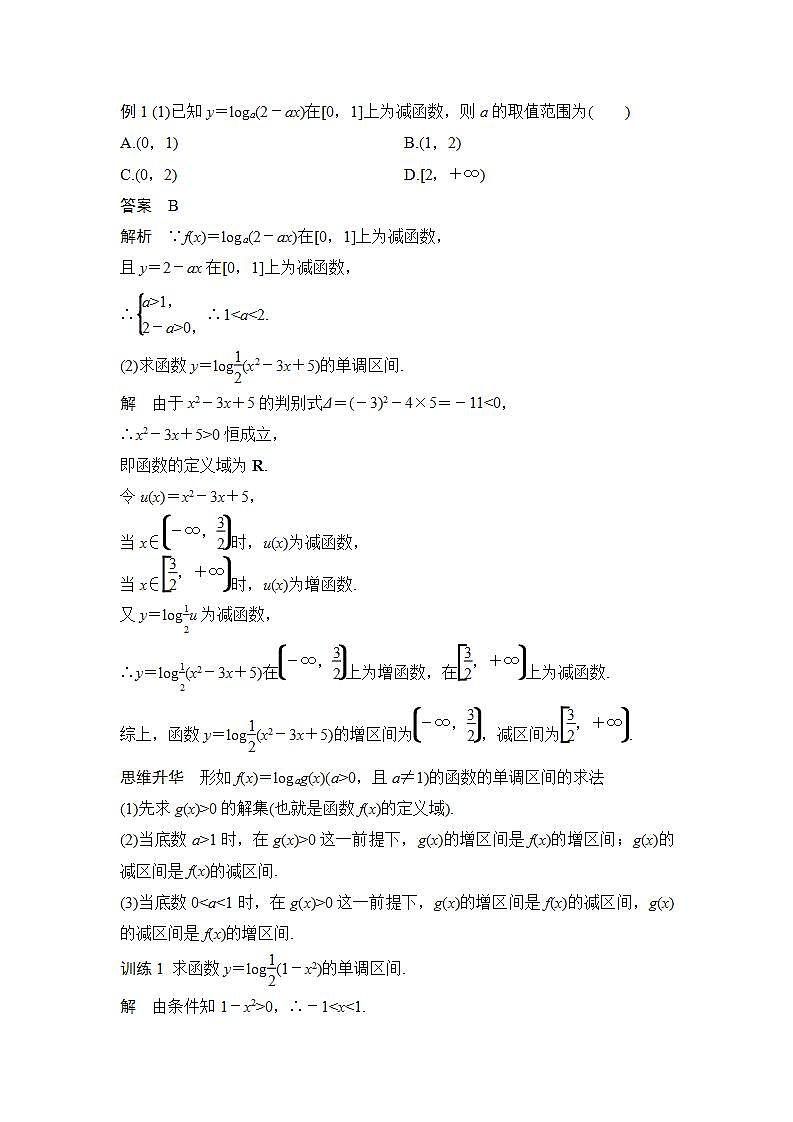 例 1 (1)已知 y＝logₐ(2－ax)在[0，1]上为减函数，则 a 的取值范围为(　　)
A.(0，1)　　B.(1，2)
C.(0，2)　　D.[2，＋∞)
答案　B
解析　∵f(x)＝logₐ(2－ax)在[0，1]上为减函数，
且 y＝2－ax 在[0，1]上为减函数，
∴{a>1，2－a>0，∴1<a<2.
(2)求函数 y＝log½(x²－3x＋5)的单调区间.
解　由于 x²－3x＋5 的判别式Δ＝(－3)²－4×5＝－11<0，
∴x²－3x＋5>0 恒成立，
即函数的定义域为 R.
令 u(x)＝x²－3x＋5，
当 x∈(－∞，3/2]时，u(x)为减函数，
当 x∈[3/2，＋∞)时，u(x)为增函数.
又 y＝log½u 为减函数，
∴y＝log½(x²－3x＋5)在(－∞，3/2]上为增函数，在[3/2，＋∞)上为减函数.
综上，函数 y＝log½(x²－3x＋5)的增区间为(－∞，3/2]，减区间为[3/2，＋∞).
思维升华　形如 f(x)＝logₐg(x)(a>0，且 a≠1)的函数的单调区间的求法
(1)先求 g(x)>0 的解集(也就是函数 f(x)的定义域).
(2)当底数 a>1 时，在 g(x)>0 这一前提下，g(x)的增区间是 f(x)的增区间；g(x)的
减区间是 f(x)的减区间.
(3)当底数 0<a<1 时，在 g(x)>0 这一前提下，g(x)的增区间是 f(x)的减区间，g(x)
的减区间是 f(x)的增区间.
训练 1 求函数 y＝log½(1－x²)的单调区间.
解　由条件知 1－x²>0，∴－1<x<1.